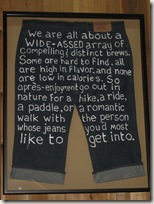 we are all about a
WIDE-ASSED array of
compelling & distinct brews.
Some are hard to find, all
are high in flavor, and none
are low in calories. So
après-enjoyment go out in
nature for a hike, a ride,
a paddle, or a romantic
walk with the person
whose jeans you'd most
like to get into.